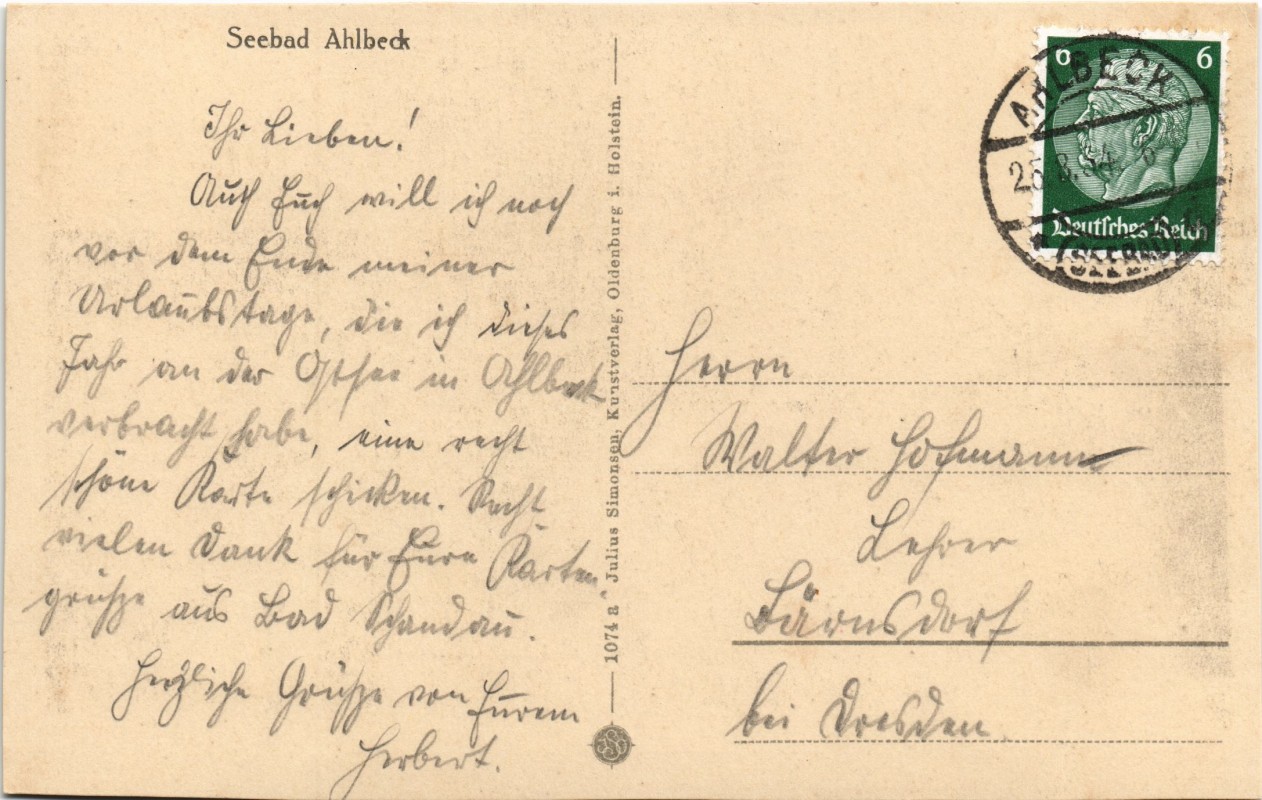 Seebad Ahlbeck
Ihr Lieben!
Auch Euch will ich noch
vor dem Ende meiner
Urlaubstage, die ich dieses
Jahr an der Ostsee in Ahlbeck
verbracht habe, eine recht
schöne Karte schicken. Recht
vielen Dank für Eure Karten
grüße aus Bad Schandau.
Herzliche Grüße von Eurem
Herbert.
1074 a Julius Simonsen, Kunstverlag, Oldenburg i. Holstein.
6 6
Deutsches Reich
AHLBECK
25.8.34
(SEEBAD)
Herrn
Walter Hofmann
Lehrer
Bärnsdorf
bei Dresden